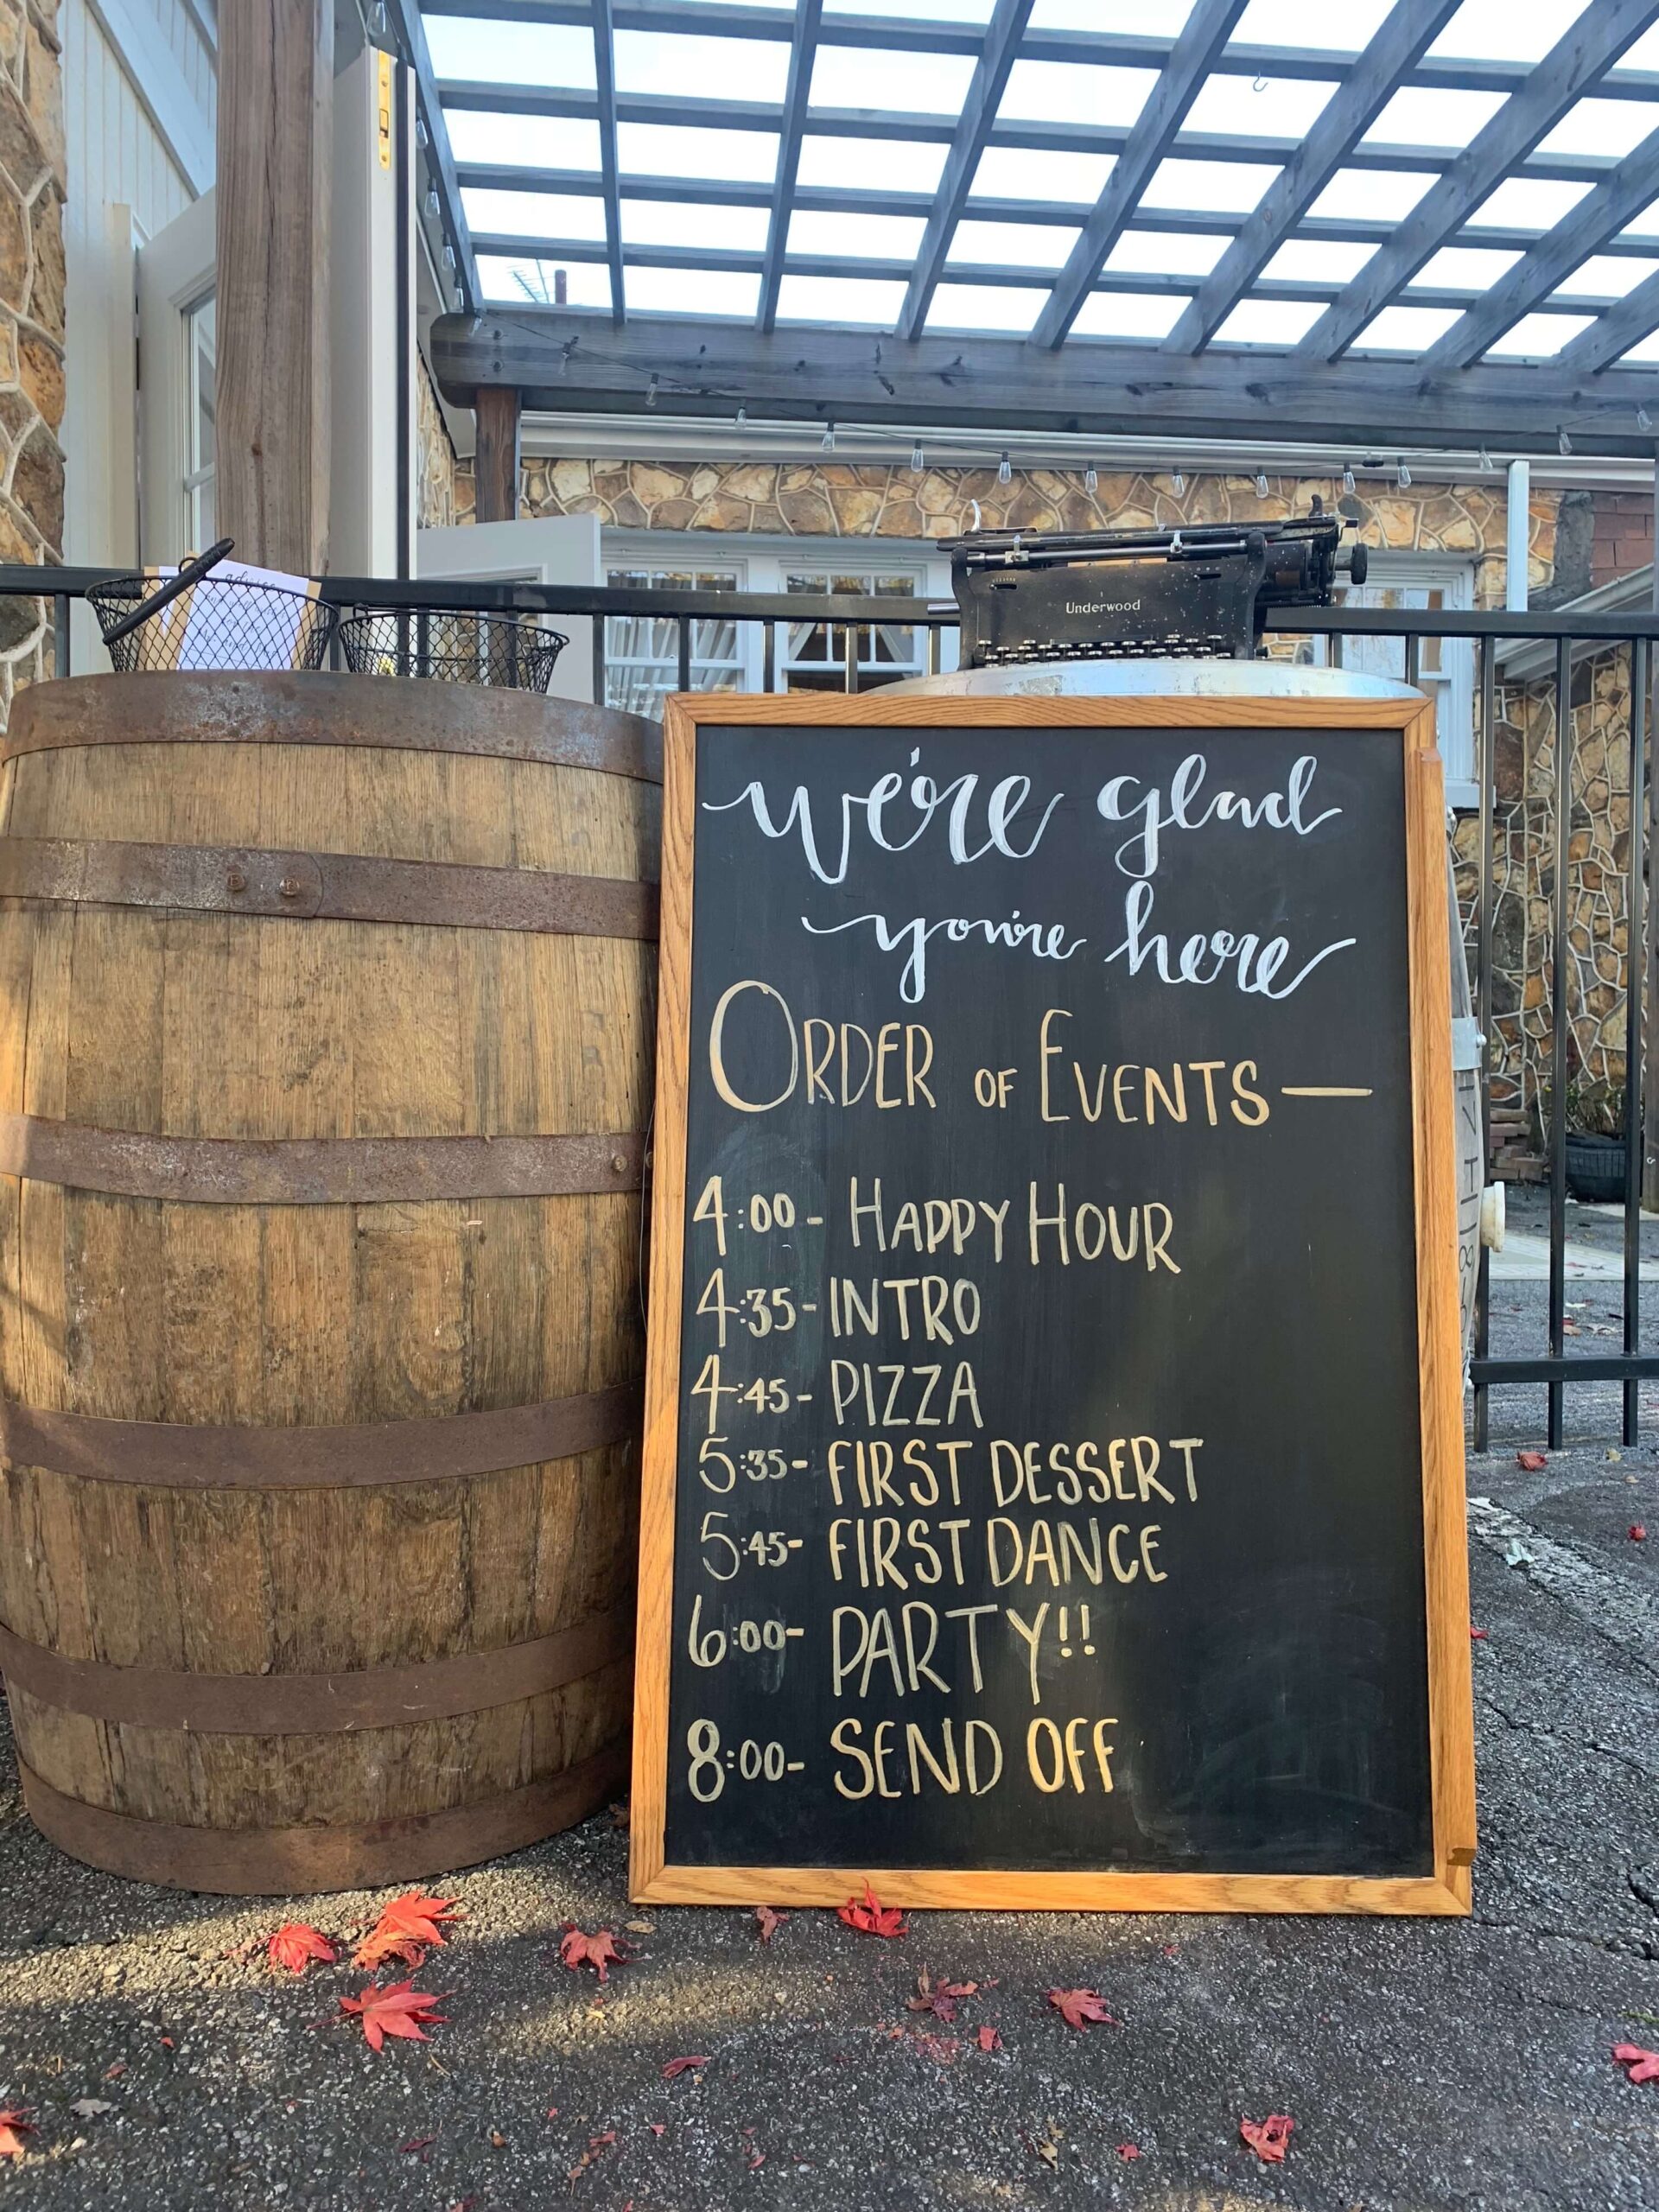 advice
Underwood
we're glad
you're here
ORDER OF EVENTS —
4:00 - HAPPY HOUR
4:35 - INTRO
4:45 - PIZZA
5:35 - FIRST DESSERT
5:45 - FIRST DANCE
6:00 - PARTY!!
8:00 - SEND OFF